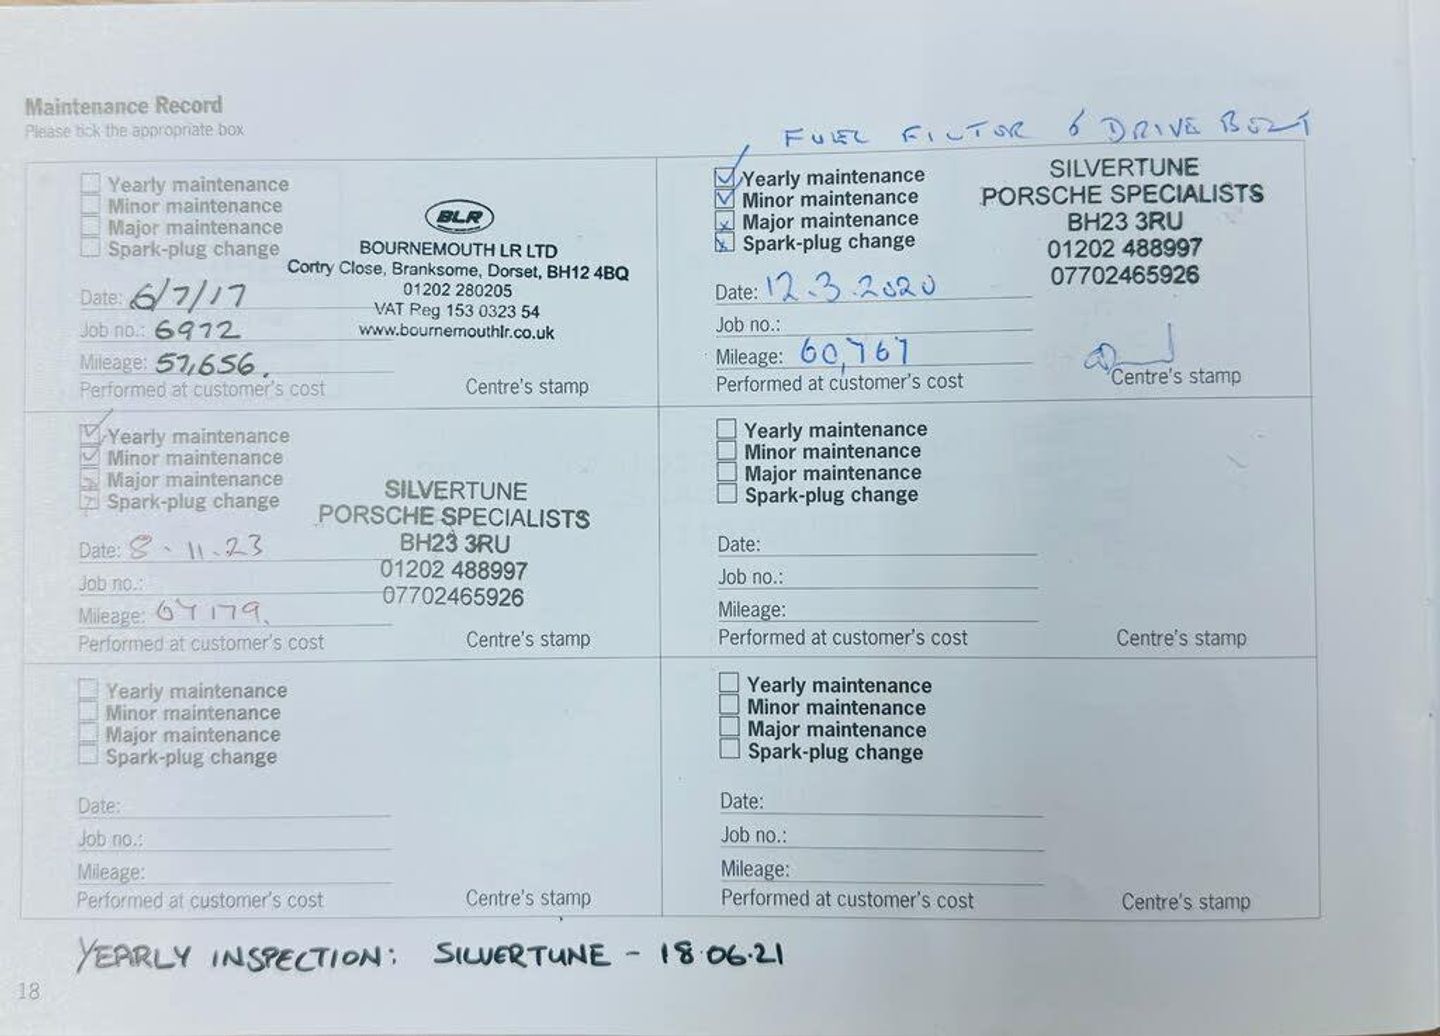 Maintenance Record
Please tick the appropriate box
FUEL FILTOR & DRIVE BELT
Yearly maintenance
Minor maintenance
Major maintenance
Spark-plug change
BLR
BOURNEMOUTH LR LTD
Cortry Close, Branksome, Dorset, BH12 4BQ
01202 280205
VAT Reg 153 0323 54
www.bournemouthlr.co.uk
Date: 6/7/17
Job no.: 6972
Mileage: 57,656.
Performed at customer's cost
Centre's stamp
Yearly maintenance
Minor maintenance
Major maintenance
Spark-plug change
SILVERTUNE
PORSCHE SPECIALISTS
BH23 3RU
01202 488997
07702465926
Date: 12.3.2020
Job no.:
Mileage: 60,767
Performed at customer's cost
Centre's stamp
Yearly maintenance
Minor maintenance
Major maintenance
Spark-plug change
SILVERTUNE
PORSCHE SPECIALISTS
BH23 3RU
01202 488997
07702465926
Date: 8.11.23
Job no.:
Mileage:
Performed at customer's cost
Centre's stamp
Yearly maintenance
Minor maintenance
Major maintenance
Spark-plug change
Date:
Job no.:
Mileage:
Performed at customer's cost
Centre's stamp
Yearly maintenance
Minor maintenance
Major maintenance
Spark-plug change
Date:
Job no.:
Mileage:
Performed at customer's cost
Centre's stamp
Yearly maintenance
Minor maintenance
Major maintenance
Spark-plug change
Date:
Job no.:
Mileage:
Performed at customer's cost
Centre's stamp
YEARLY INSPECTION: SILVERTUNE - 18.06.21
18